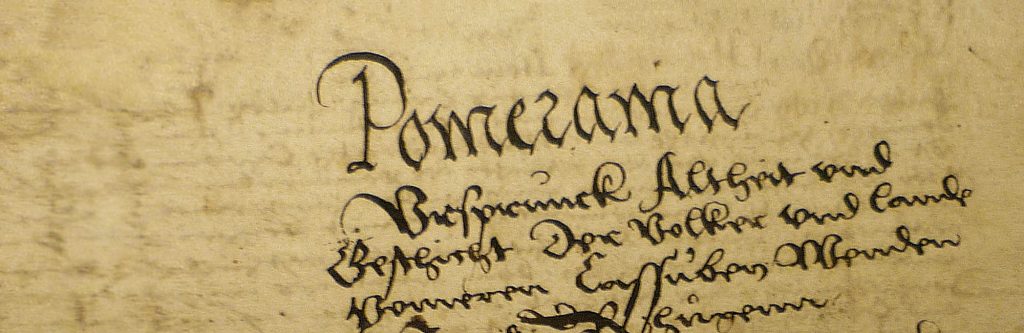 Pomerania
Vrsprunck Altheit vnd
Geschicht Der Volker vnd lannde
Pomeren Cassuben Wenden
Rhugenn